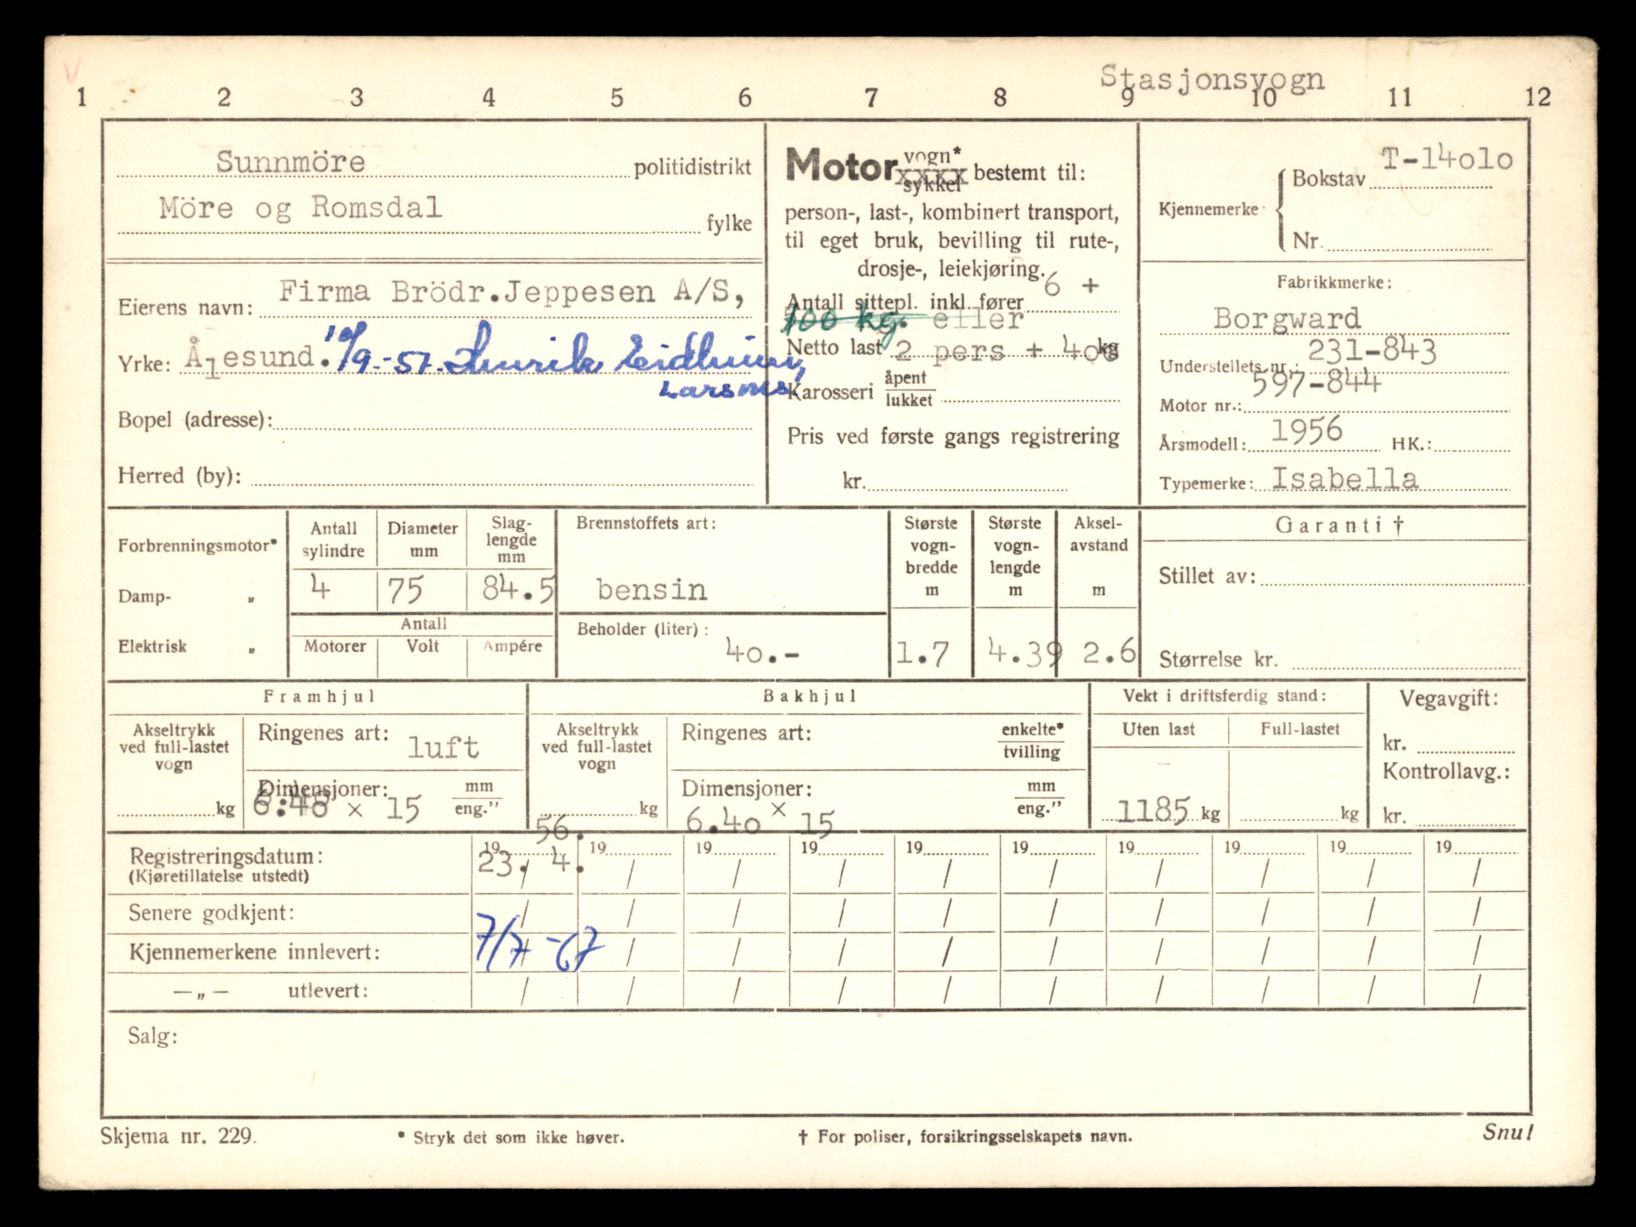 Stasjonsvogn
1 2 3 4 5 6 7 8 9 10 11 12
Sunnmöre politidistrikt
Möre og Romsdal fylke
Eierens navn: Firma Brödr.Jeppesen A/S,
Yrke: Ålesund. 10/9-57. Henrik Eidhuin,
Larsnes.
Bopel (adresse):
Herred (by):
Motor vogn* sykkel bestemt til:
person-, last-, kombinert transport,
til eget bruk, bevilling til rute-,
drosje-, leiekjøring.
Antall sittepl. inkl. fører 6 +
100 kg. eller
Netto last 2 pers + 400 kg
Karosseri åpent lukket
Pris ved første gangs registrering
kr.
T-14010
Kjennemerke Bokstav
Nr.
Fabrikkmerke:
Borgward
Understellets nr.: 231-843
Motor nr.: 597-844
Årsmodell: 1956 HK.:
Typemerke: Isabella
Forbrenningsmotor*
Damp- „
Elektrisk „
Antall sylindre
Diameter mm
Slag-lengde mm
4 75 84.5
Antall
Motorer Volt Ampére
Brennstoffets art:
bensin
Beholder (liter):
40.-
Største vogn-bredde m
1.7
Største vogn-lengde m
4.39
Aksel-avstand m
2.6
Garanti †
Stillet av:
Størrelse kr.
Framhjul
Akseltrykk ved full-lastet vogn
kg
Ringenes art: luft
Dimensjoner: mm eng.”
× 15
Bakhjul
Akseltrykk ved full-lastet vogn
kg
Ringenes art: enkelte* tvilling
Dimensjoner: mm eng.”
6.40 × 15
Vekt i driftsferdig stand:
Uten last Full-lastet
1185 kg kg
Vegavgift:
kr.
Kontrollavg.:
kr.
56.
Registreringsdatum: 19 19 19 19 19 19 19 19 19 19
(Kjøretillatelse utstedt) 23. 4. / / / / / / / / /
Senere godkjent: / / / / / / / / / /
Kjennemerkene innlevert: 7/7-67 / / / / / / / / /
— „ — utlevert: / / / / / / / / / /
Salg:
Skjema nr. 229. * Stryk det som ikke høver. † For poliser, forsikringsselskapets navn. Snu!